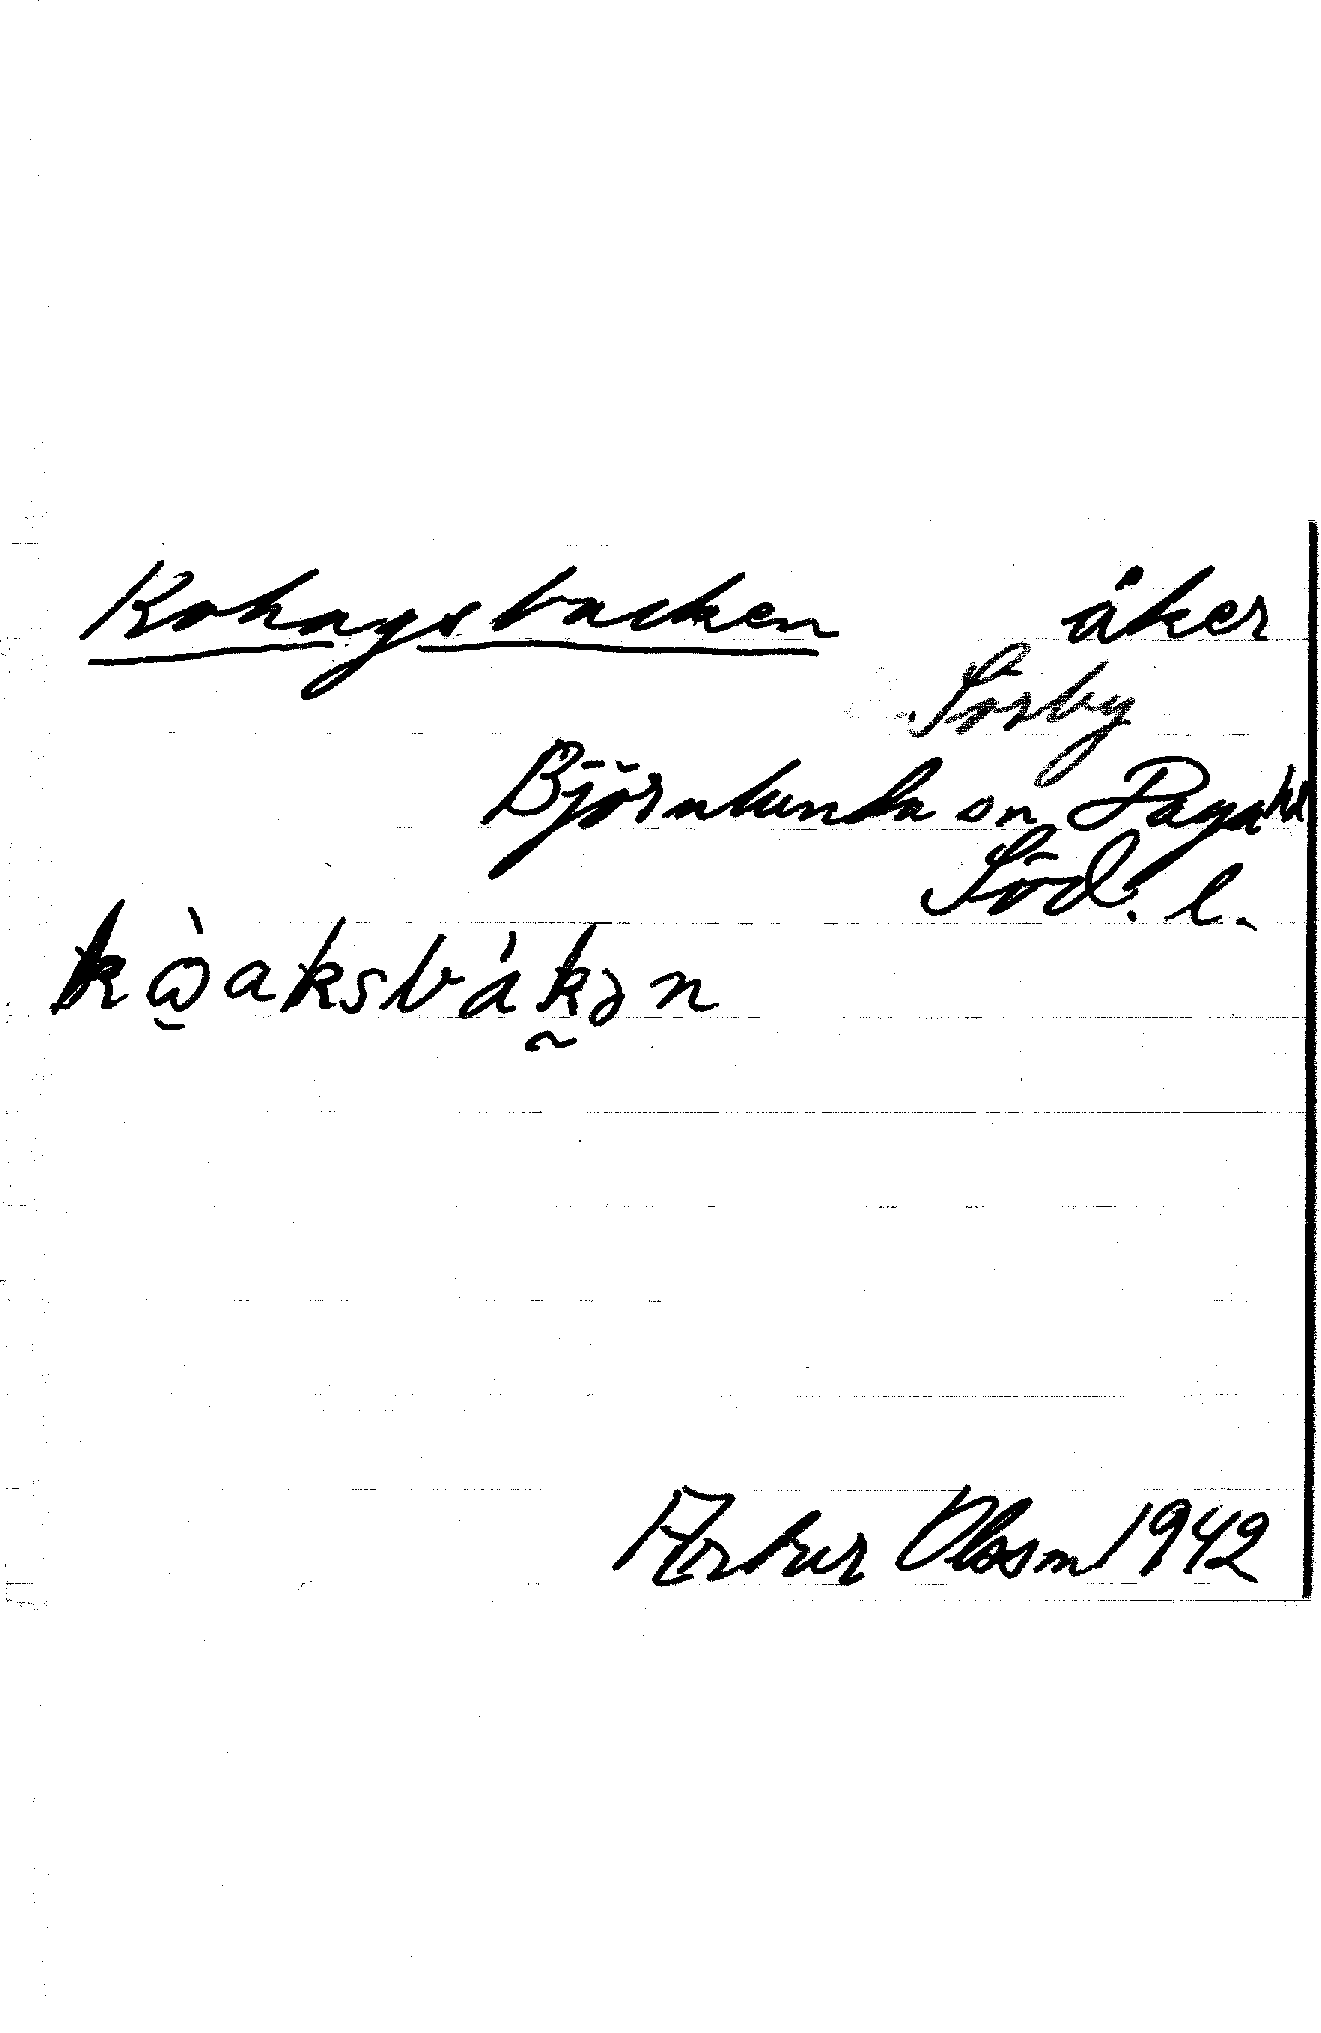 Kohagsbacken åker
Sörby
Björnlunda sn Daga hd
Söd. l.
kὼaksbákən
Artur Olsson 1942